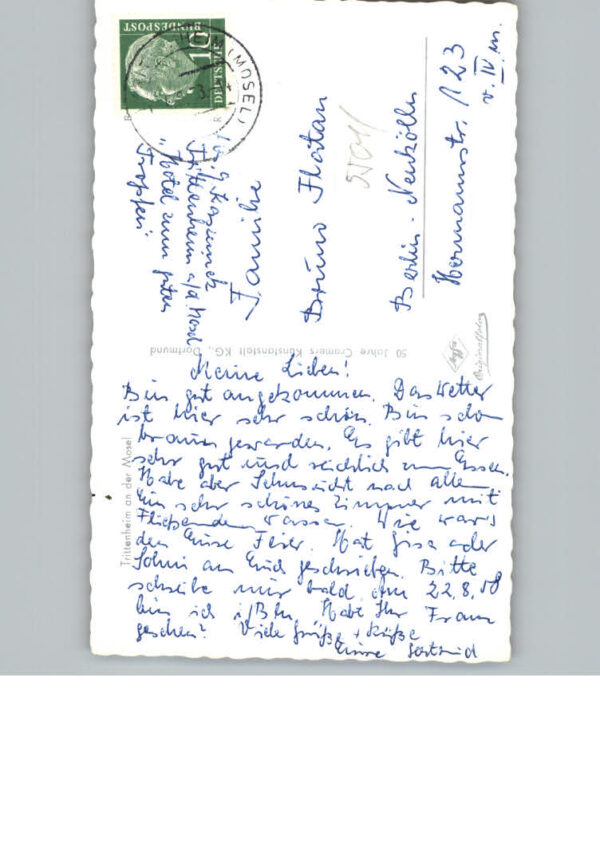 Meine Lieben!
Bin gut angekommen. Das Wetter
ist hier sehr schön. Bin schon
braun geworden. Es gibt hier
sehr gut und reichlich zum Essen.
Habe aber Sehnsucht nach allen
Ein sehr schönes Zimmer mit
Fließendem Wasser. Wie war's
den Eure Feier. Hat Gisa oder
an Euch geschrieben. Bitte
schreibe mir bald am 22.8.58
bin ich i/Bln. Habe Ihr Frau
gesehen? Viele Grüße + Küße
Eure
Familie
Bruno Flatau
Berlin-Neukölln
Hermannstr. 123
v. IV m.
Trittenheim a/d Mosel
"Hotel zum guten
Tropfen".
Trittenheim an der Mosel
50 Jahre Cramers Kunstanstalt KG., Dortmund
Agfa
Originalfoto
DEUTSCHE
BUNDESPOST
10
HEIM (MOSEL)